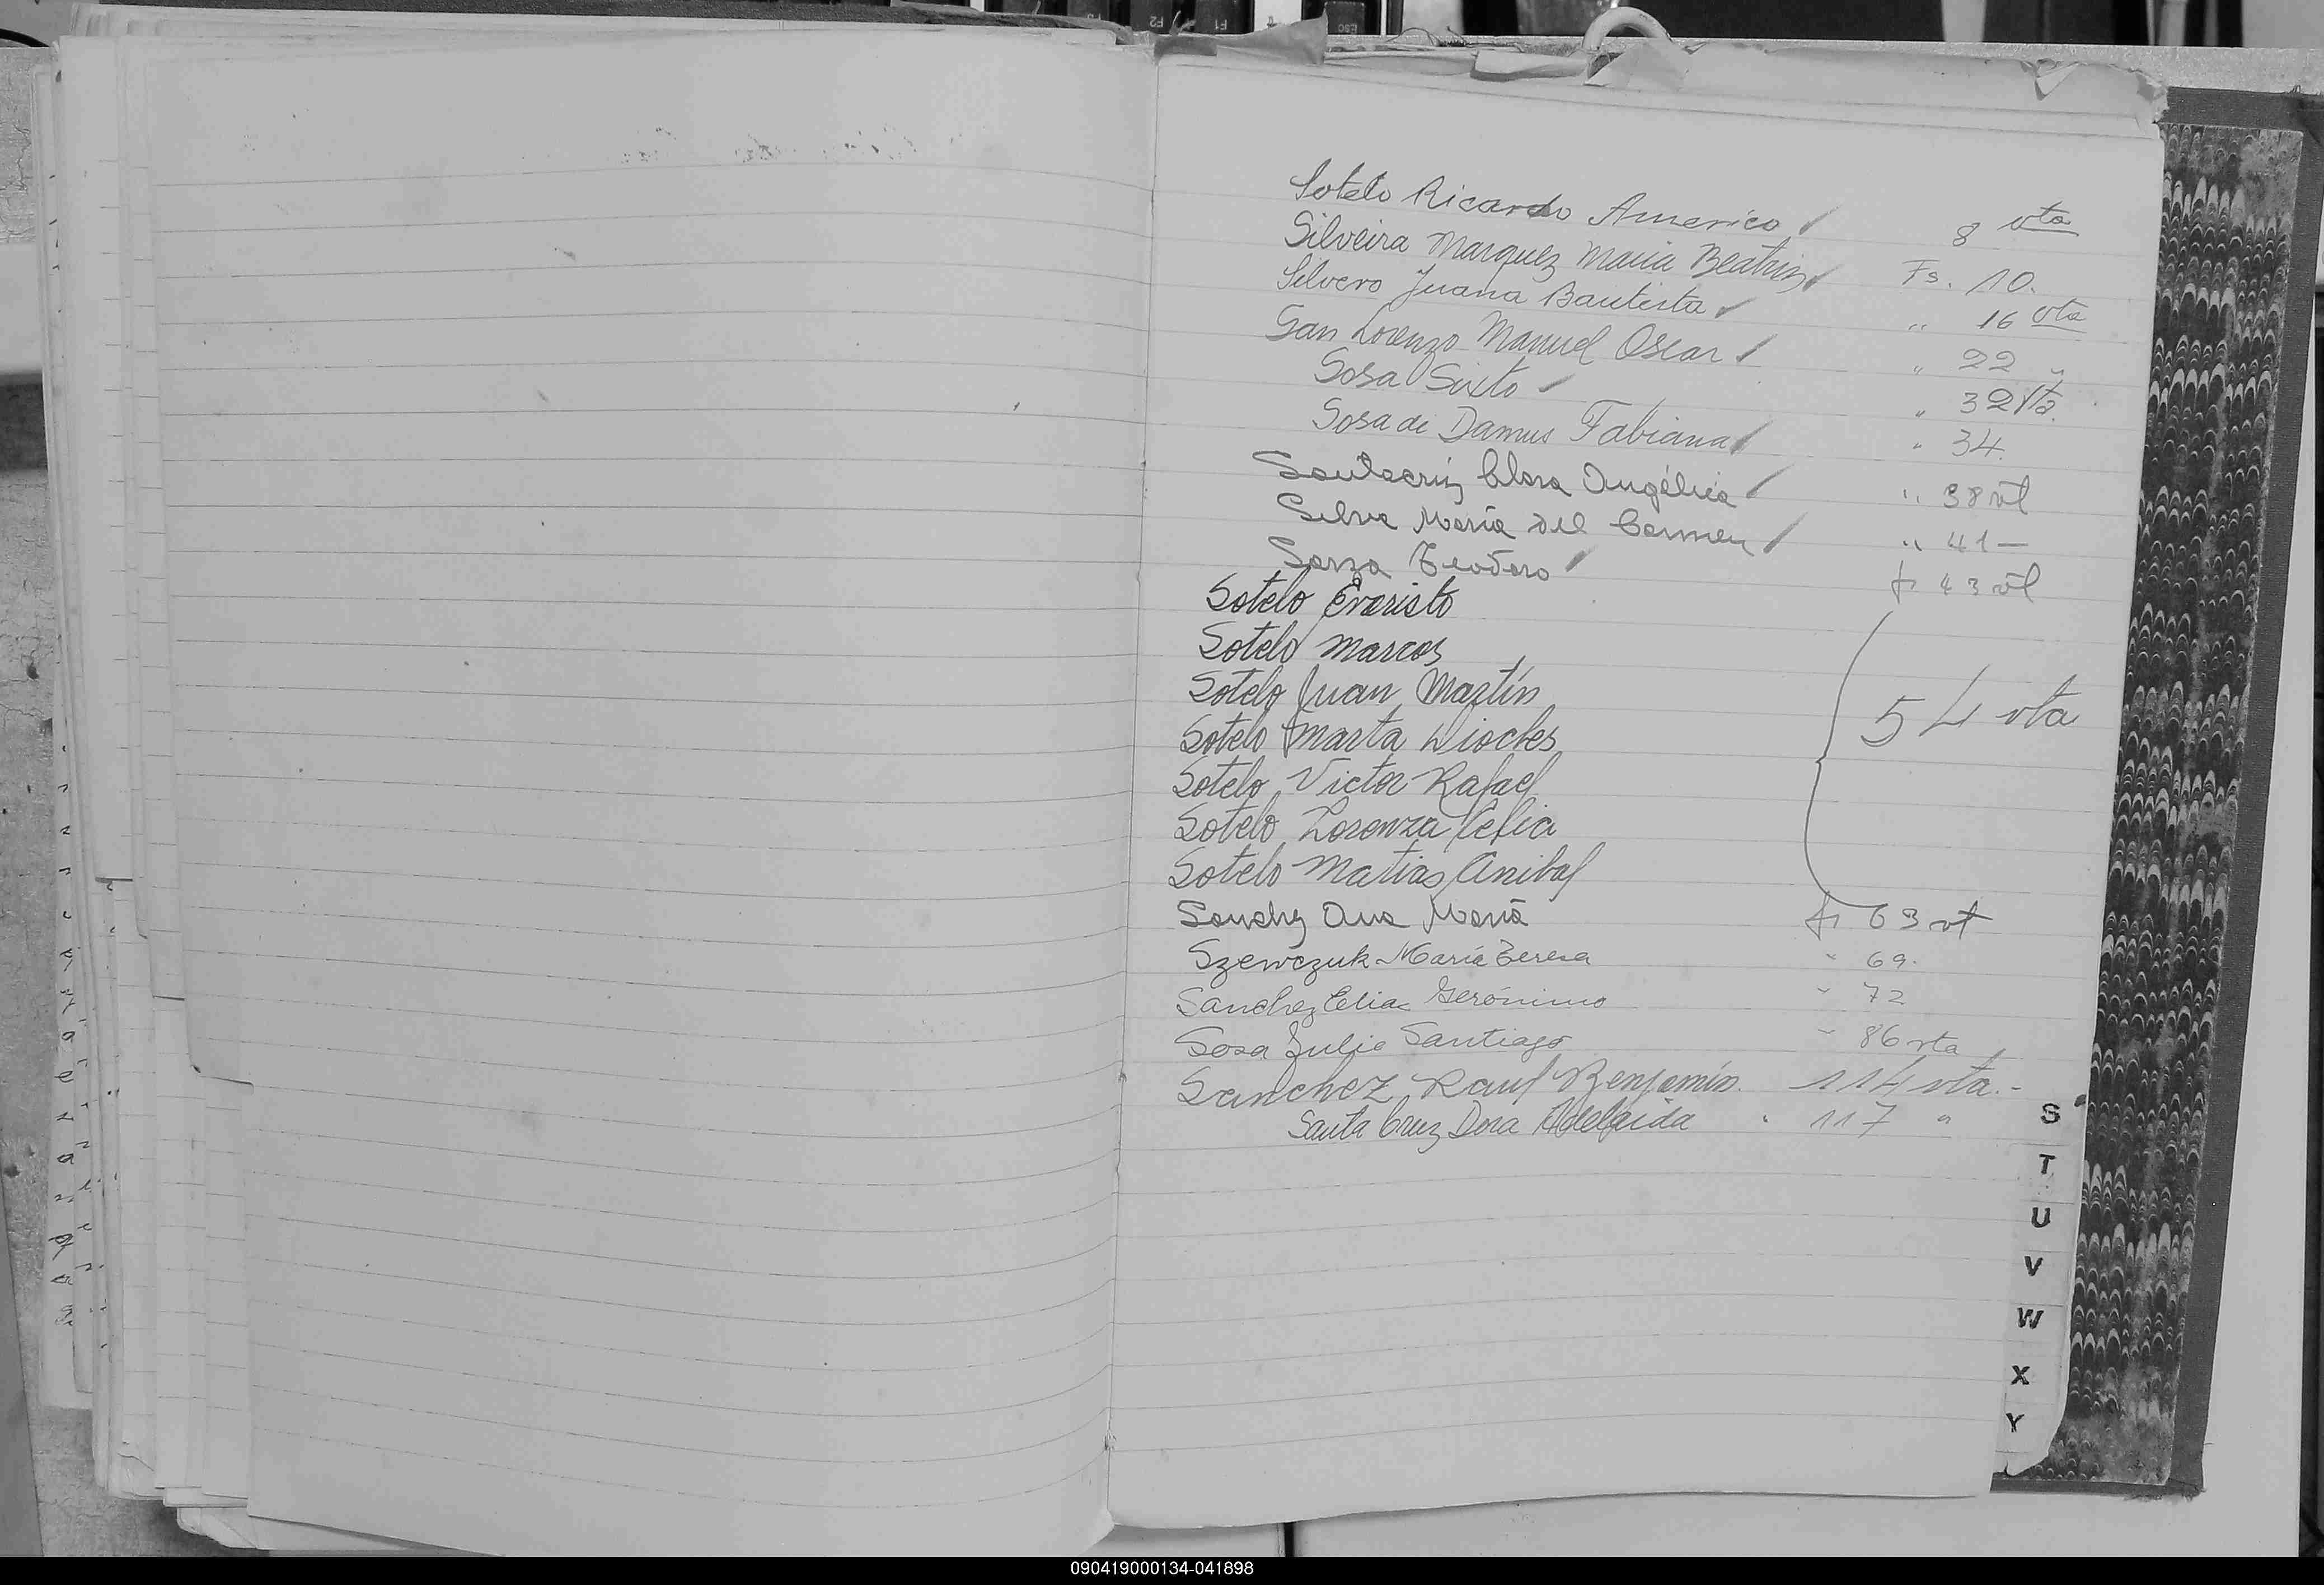 Sotelo Ricardo Americo 8 vta
Silveira Marquez Maria Beatriz Fs. 10.
Silvero Juana Bautista " 16 vta
San Lorenzo Manuel Oscar " 22 "
Sosa Sixto " 32 vta.
Sosa de Damus Fabiana " 34.
Santacruz Clara Angélica " 38 vt
Silva María del Carmen " 41 —
Sanza Teodoro fs 43 vt
Sotelo Evaristo
Sotelo Marcos
Sotelo Juan Martín
Sotelo Marta Diocles
54 vta
Sotelo Victor Rafael
Sotelo Lorenza Celia
Sotelo Matias Anibal
Sanchez Ana María fs 63 vt
Szewczuk María Teresa " 69.
Sanchez Elias Gerónimo " 72
Sosa Julio Santiago " 86 vta
Sanchez Raul Benjamín. 114 vta.-
Santa Cruz Dora Adelaida " 117 "
S
T
U
V
W
X
Y
090419000134-041898